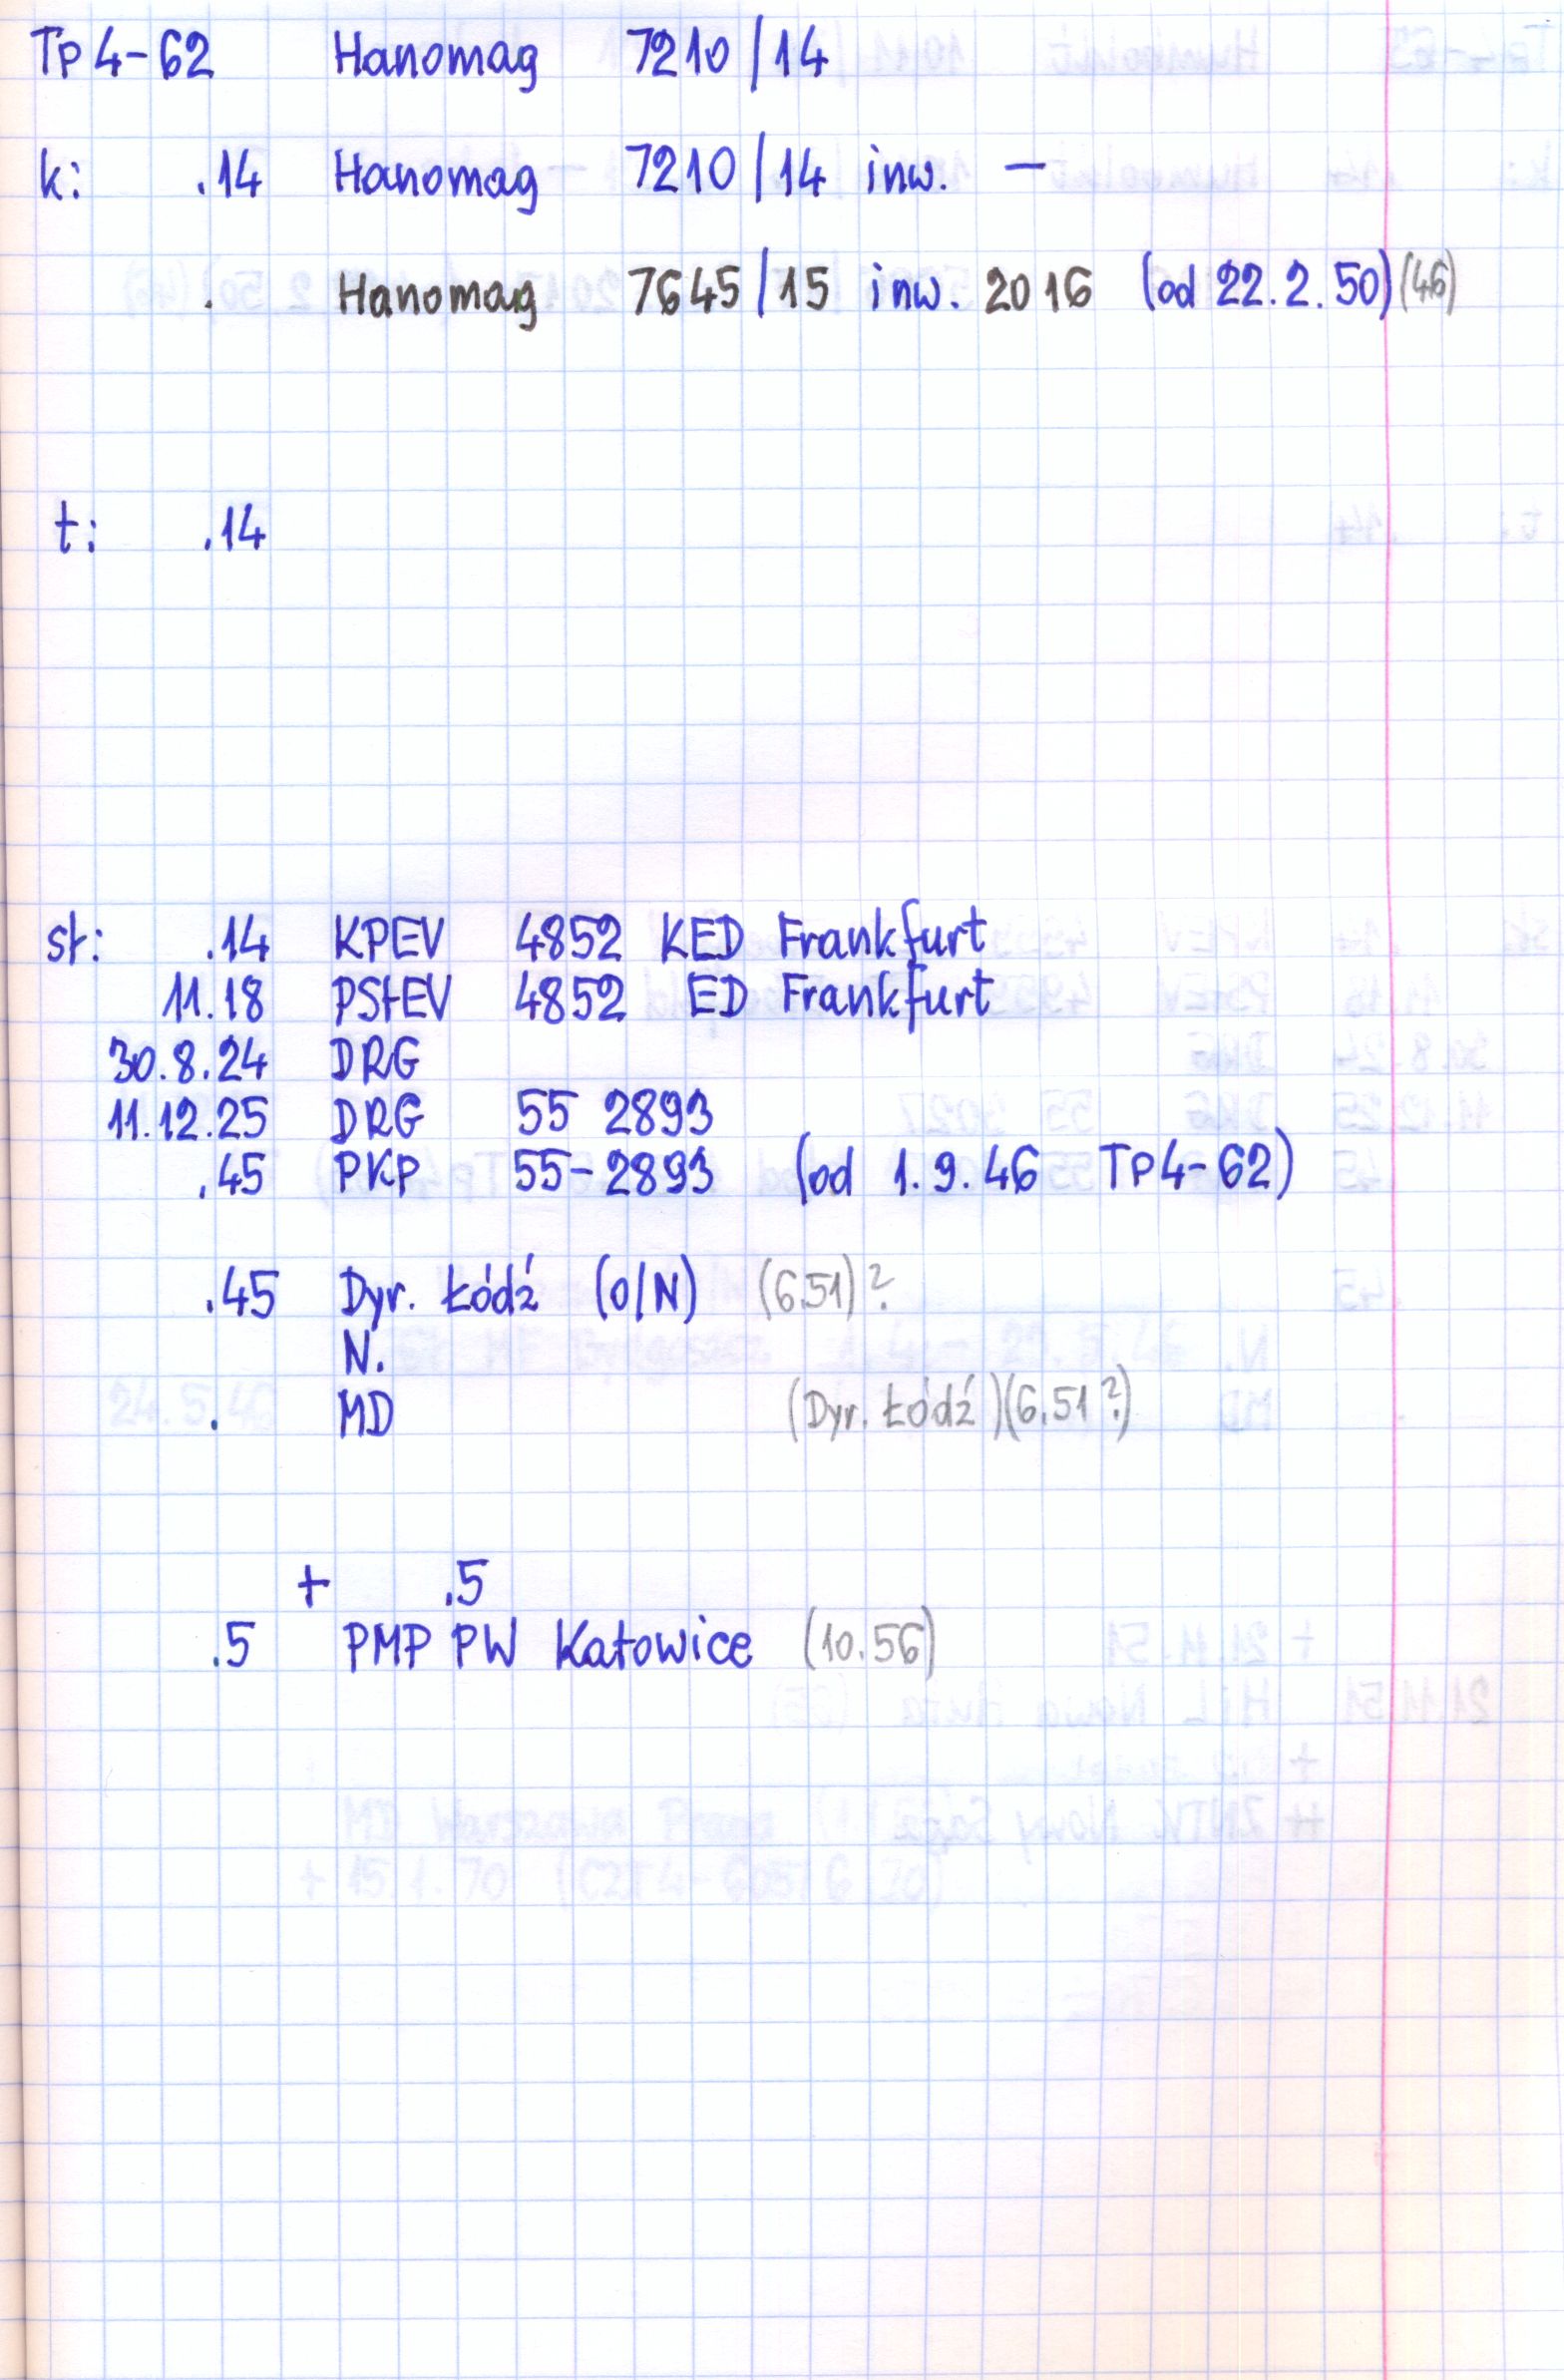 Tp4-62 Hanomag 7210/14
k: .14 Hanomag 7210/14 inw. —
. Hanomag 7645/15 inw. 2016 (od 22.2.50) (46)
t: .14
st: .14 KPEV 4852 KED Frankfurt
11.18 PStEV 4852 ED Frankfurt
30.8.24 DRG
11.12.25 DRG 55 2893
.45 PKP 55-2893 (od 1.9.46 Tp4-62)
.45 Dyr. Łódź (O/N) (6.51)?
N.
. MD (Dyr. Łódź) (6.51?)
+ .5
.5 PMP PW Katowice (10.56)